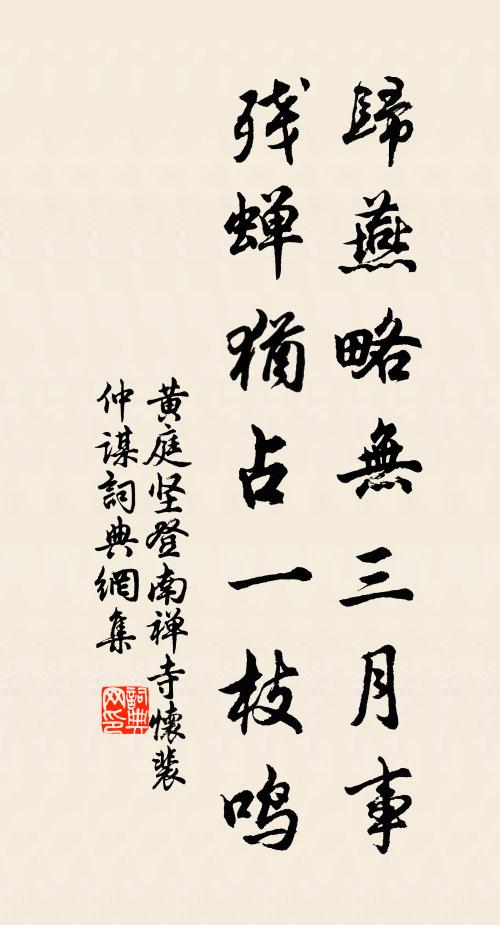 歸燕略無三月事
残蝉猶占一枝鸣
黄庭坚登南禅寺懷裴
仲谋詞典網集
詞典网印